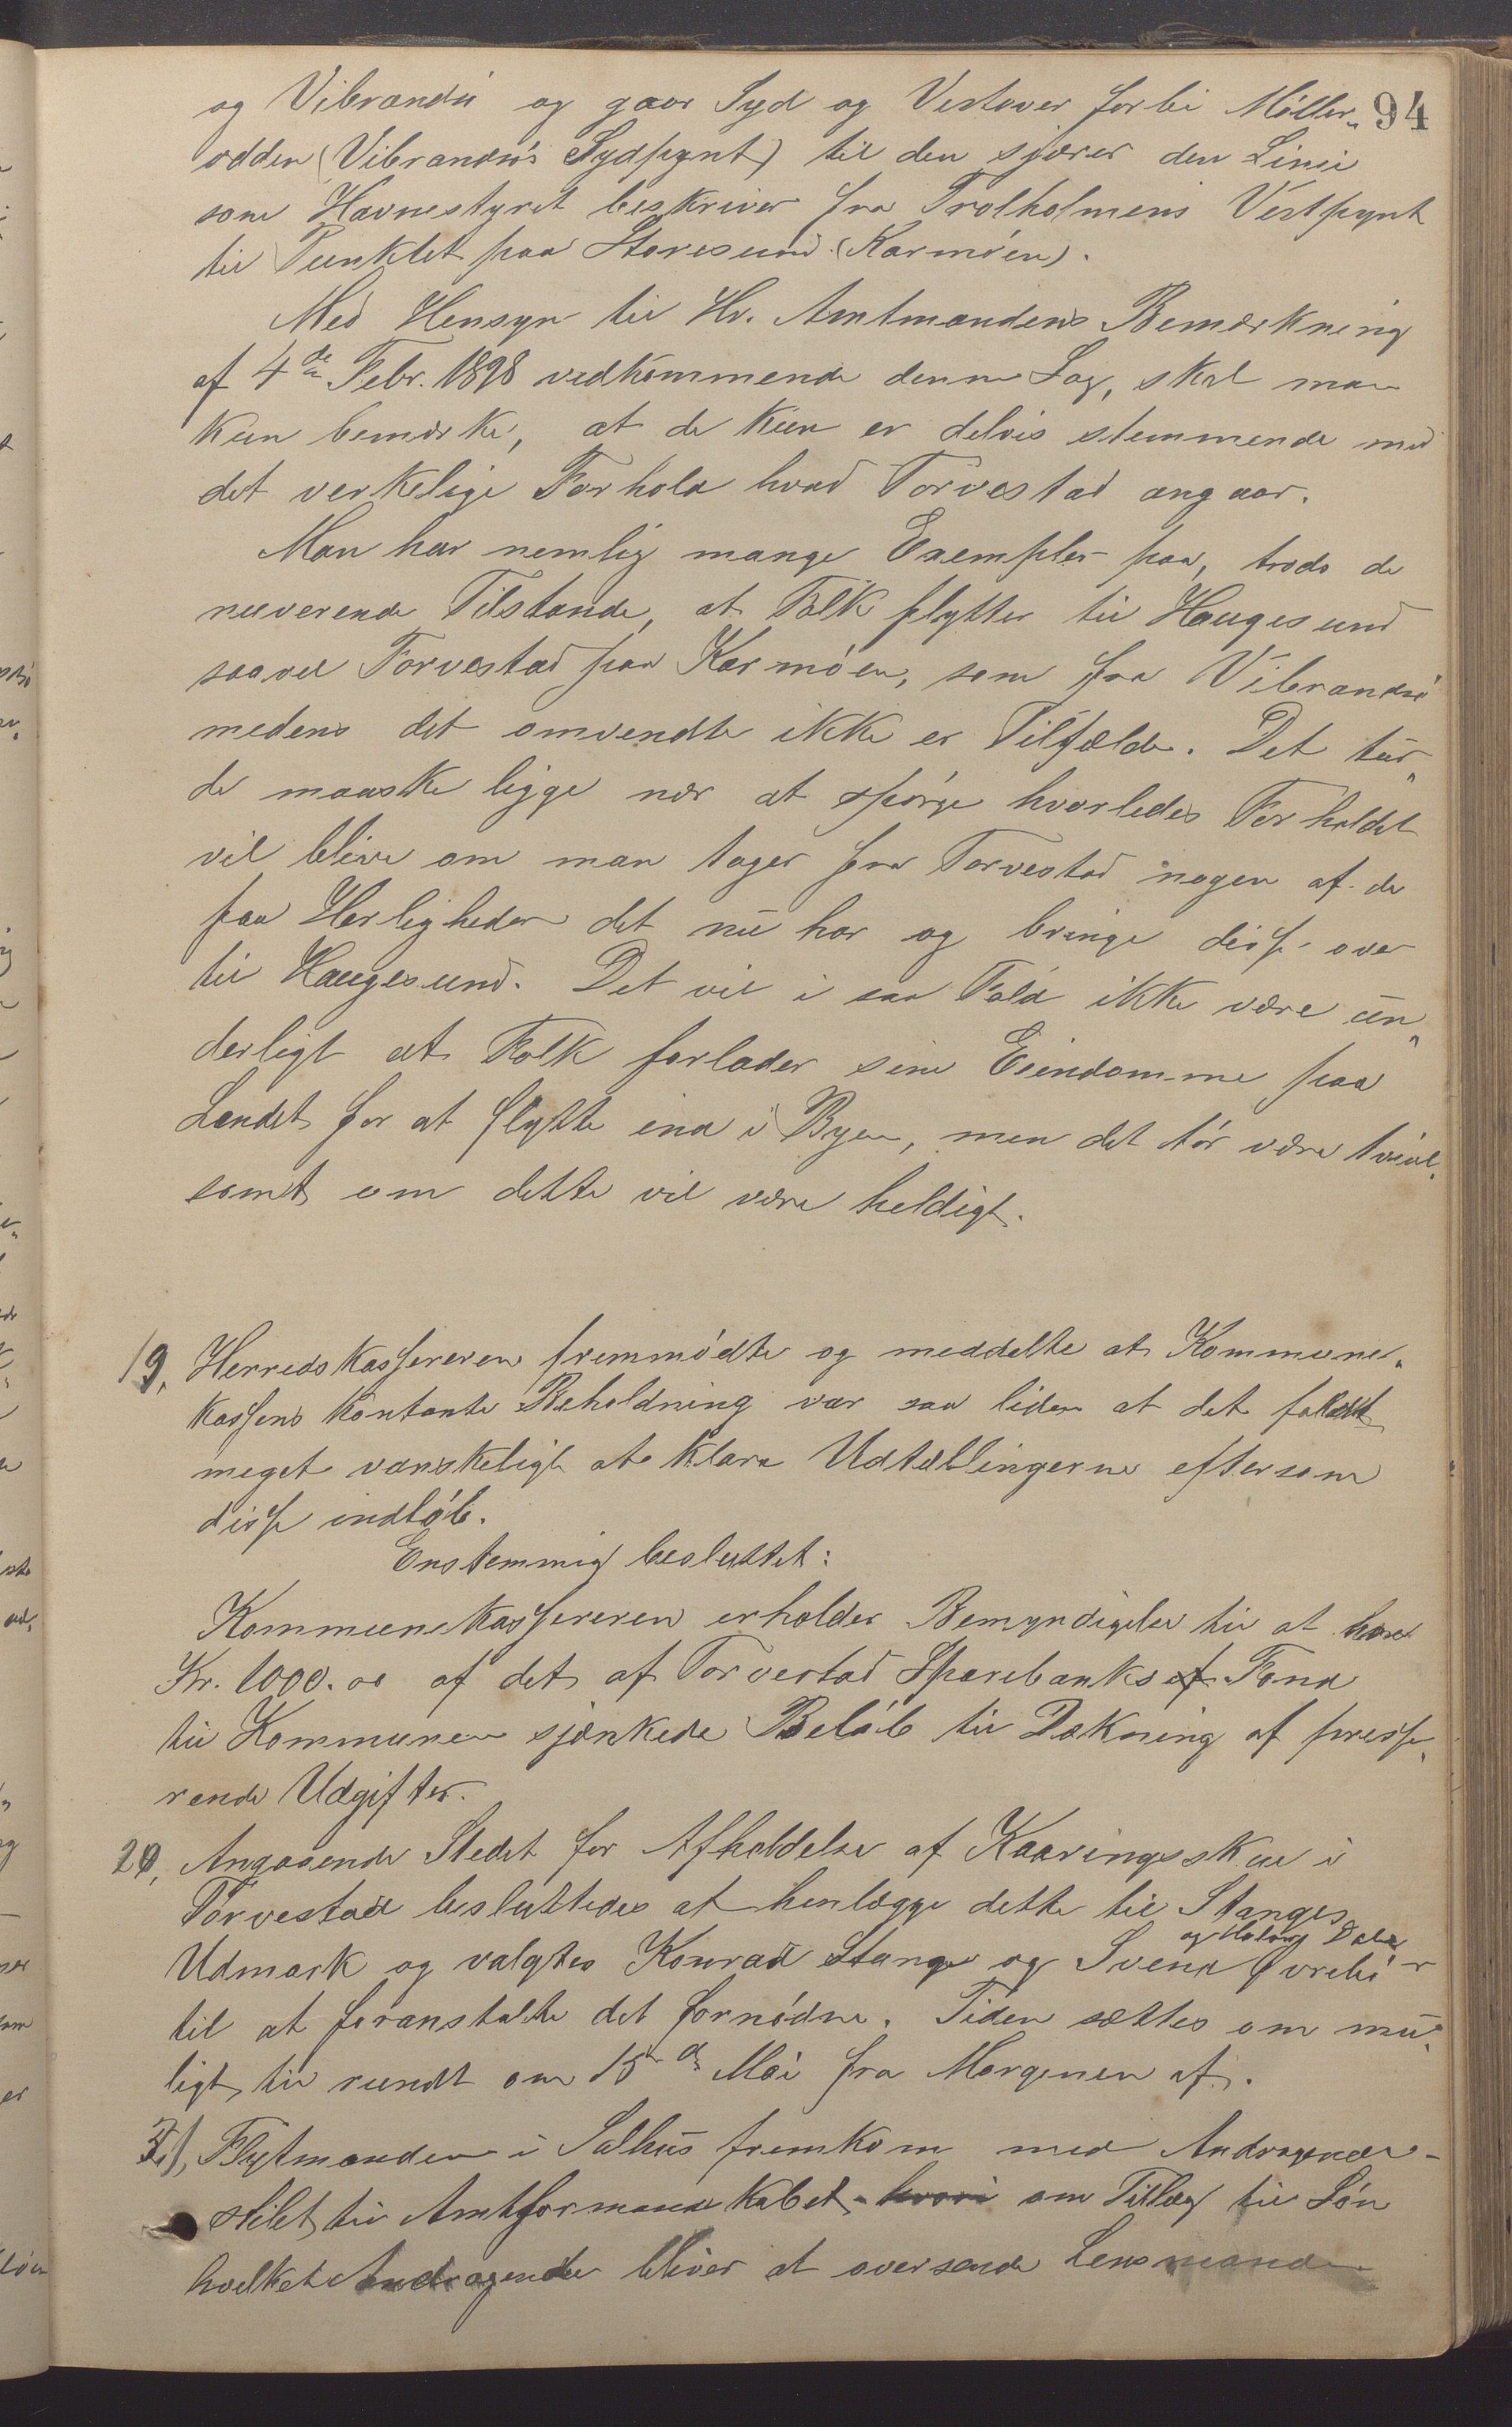 94
og Vibrandsö og gaar Syd og Vestover forbi Möller-
odden (Vibrandsö's Sydpynt) til den sjærer den Linie
som Havnestyret beskriver fra Trolholmens Vestpynt
til Punktet paa Storesund (Karmöen).
Med Hensyn til Hr. Amtmandens Bemærkning
af 4de Febr. 1898 vedkommende denne Sag, skal man
kun bemærke, at de kun er delvis stemmende med
det verkelige Forhold hvad Torvestad angaar.
Man har nemlig mange Exempler paa, trods de
nuverende Tilstande, at Folk flytter til Haugesund
saavel Torvestad paa Karmöen, som fra Vibrandsö
medens det omvendte ikke er Tilfælde. Det tur-
de maaske ligge nær at spörge hvorledes Forholdet
vil blive om man tager fra Torvestad nogen af de
faa Herligheder det nu har og bringe disse over
til Haugesund. Det vil i saa Fald ikke være un-
derligt at Folk forlader sine Eiendomme paa
Landet for at flytte ind i Byen, men det tör være tvivl-
somt om dette vil være heldigt.
19, Herredskassereren fremmödte og meddelte at Kommune-
kassens kontante Beholdning var saa liden at det faldt
meget vanskeligt at klare Udtællingerne eftersom
disse indlöb.
Enstemmig besluttet:
Kommunekassereren erholder Bemyndigelse til at hæve
Kr. 1000.00 af det af Torvestad Sparebanks af Fond
til Kommunen sjænkede Belöb til Dækning af presse-
rende Udgifter.
20, Angaaende Stedet for Afholdelse af Kaaringsskue i
Torvestad besluttedes at henlægge dette til Stanges
og Dale
Udmark og valgtes Konrad Stange og SvendÖvrebö
til at foranstalte det fornödne. Tiden sættes om mu-
ligt til rundt om 15de Mai fra Morgenen af.
21, Flytmanden i Salhus fremkom med Andragende
stilet til Amtformandskabet hvori om Tillæg til Lön
hvilket Andragende bliver at oversende Lensmanden